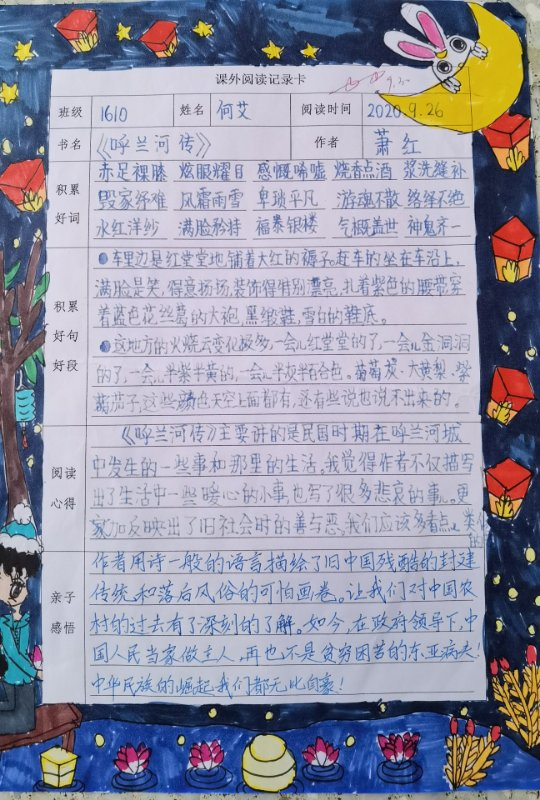 课外阅读记录卡
9.30
班级 1610 姓名 何艾 阅读时间 2020.9.26
书名 《呼兰河传》 作者 萧红
积累好词
赤足裸膝 炫眼耀目 感慨唏嘘 烧香点酒 浆洗缝补
毁家纾难 风霜雨雪 卑琐平凡 游魂不散 络绎不绝
水红洋纱 满脸矜持 福泰银楼 气概盖世 神鬼齐一
积累好句好段
●车里边是红堂堂地铺着大红的褥子。赶车的坐在车沿上,
满脸是笑,得意扬扬,装饰得特别漂亮,扎着紫色的腰带穿
着蓝色花丝葛的大袍,黑缎鞋,雪白的鞋底。
●这地方的火烧云变化极多,一会儿红堂堂的了,一会儿金洞洞
的了,一会儿半紫半黄的,一会儿半灰半百合色。葡萄提、大黄梨、紫
茄子,这些颜色天空上面都有,还有些说也说不出来的。
阅读心得
《呼兰河传》主要讲的是民国时期在呼兰河城
中发生的一些事和那里的生活。我觉得作者不仅描写
出了生活中一些暖心的小事,也写了很多悲哀的事。更
加反映出了旧社会时的善与恶,我们应该多看点。类似的
亲子感悟
作者用诗一般的语言描绘了旧中国残酷的封建
传统和落后风俗的可怕画卷。让我们对中国农
村的过去有了深刻的了解。如今,在政府领导下,中
国人民当家做主人,再也不是贫穷困苦的东亚病夫!
中华民族的崛起我们都无比自豪!